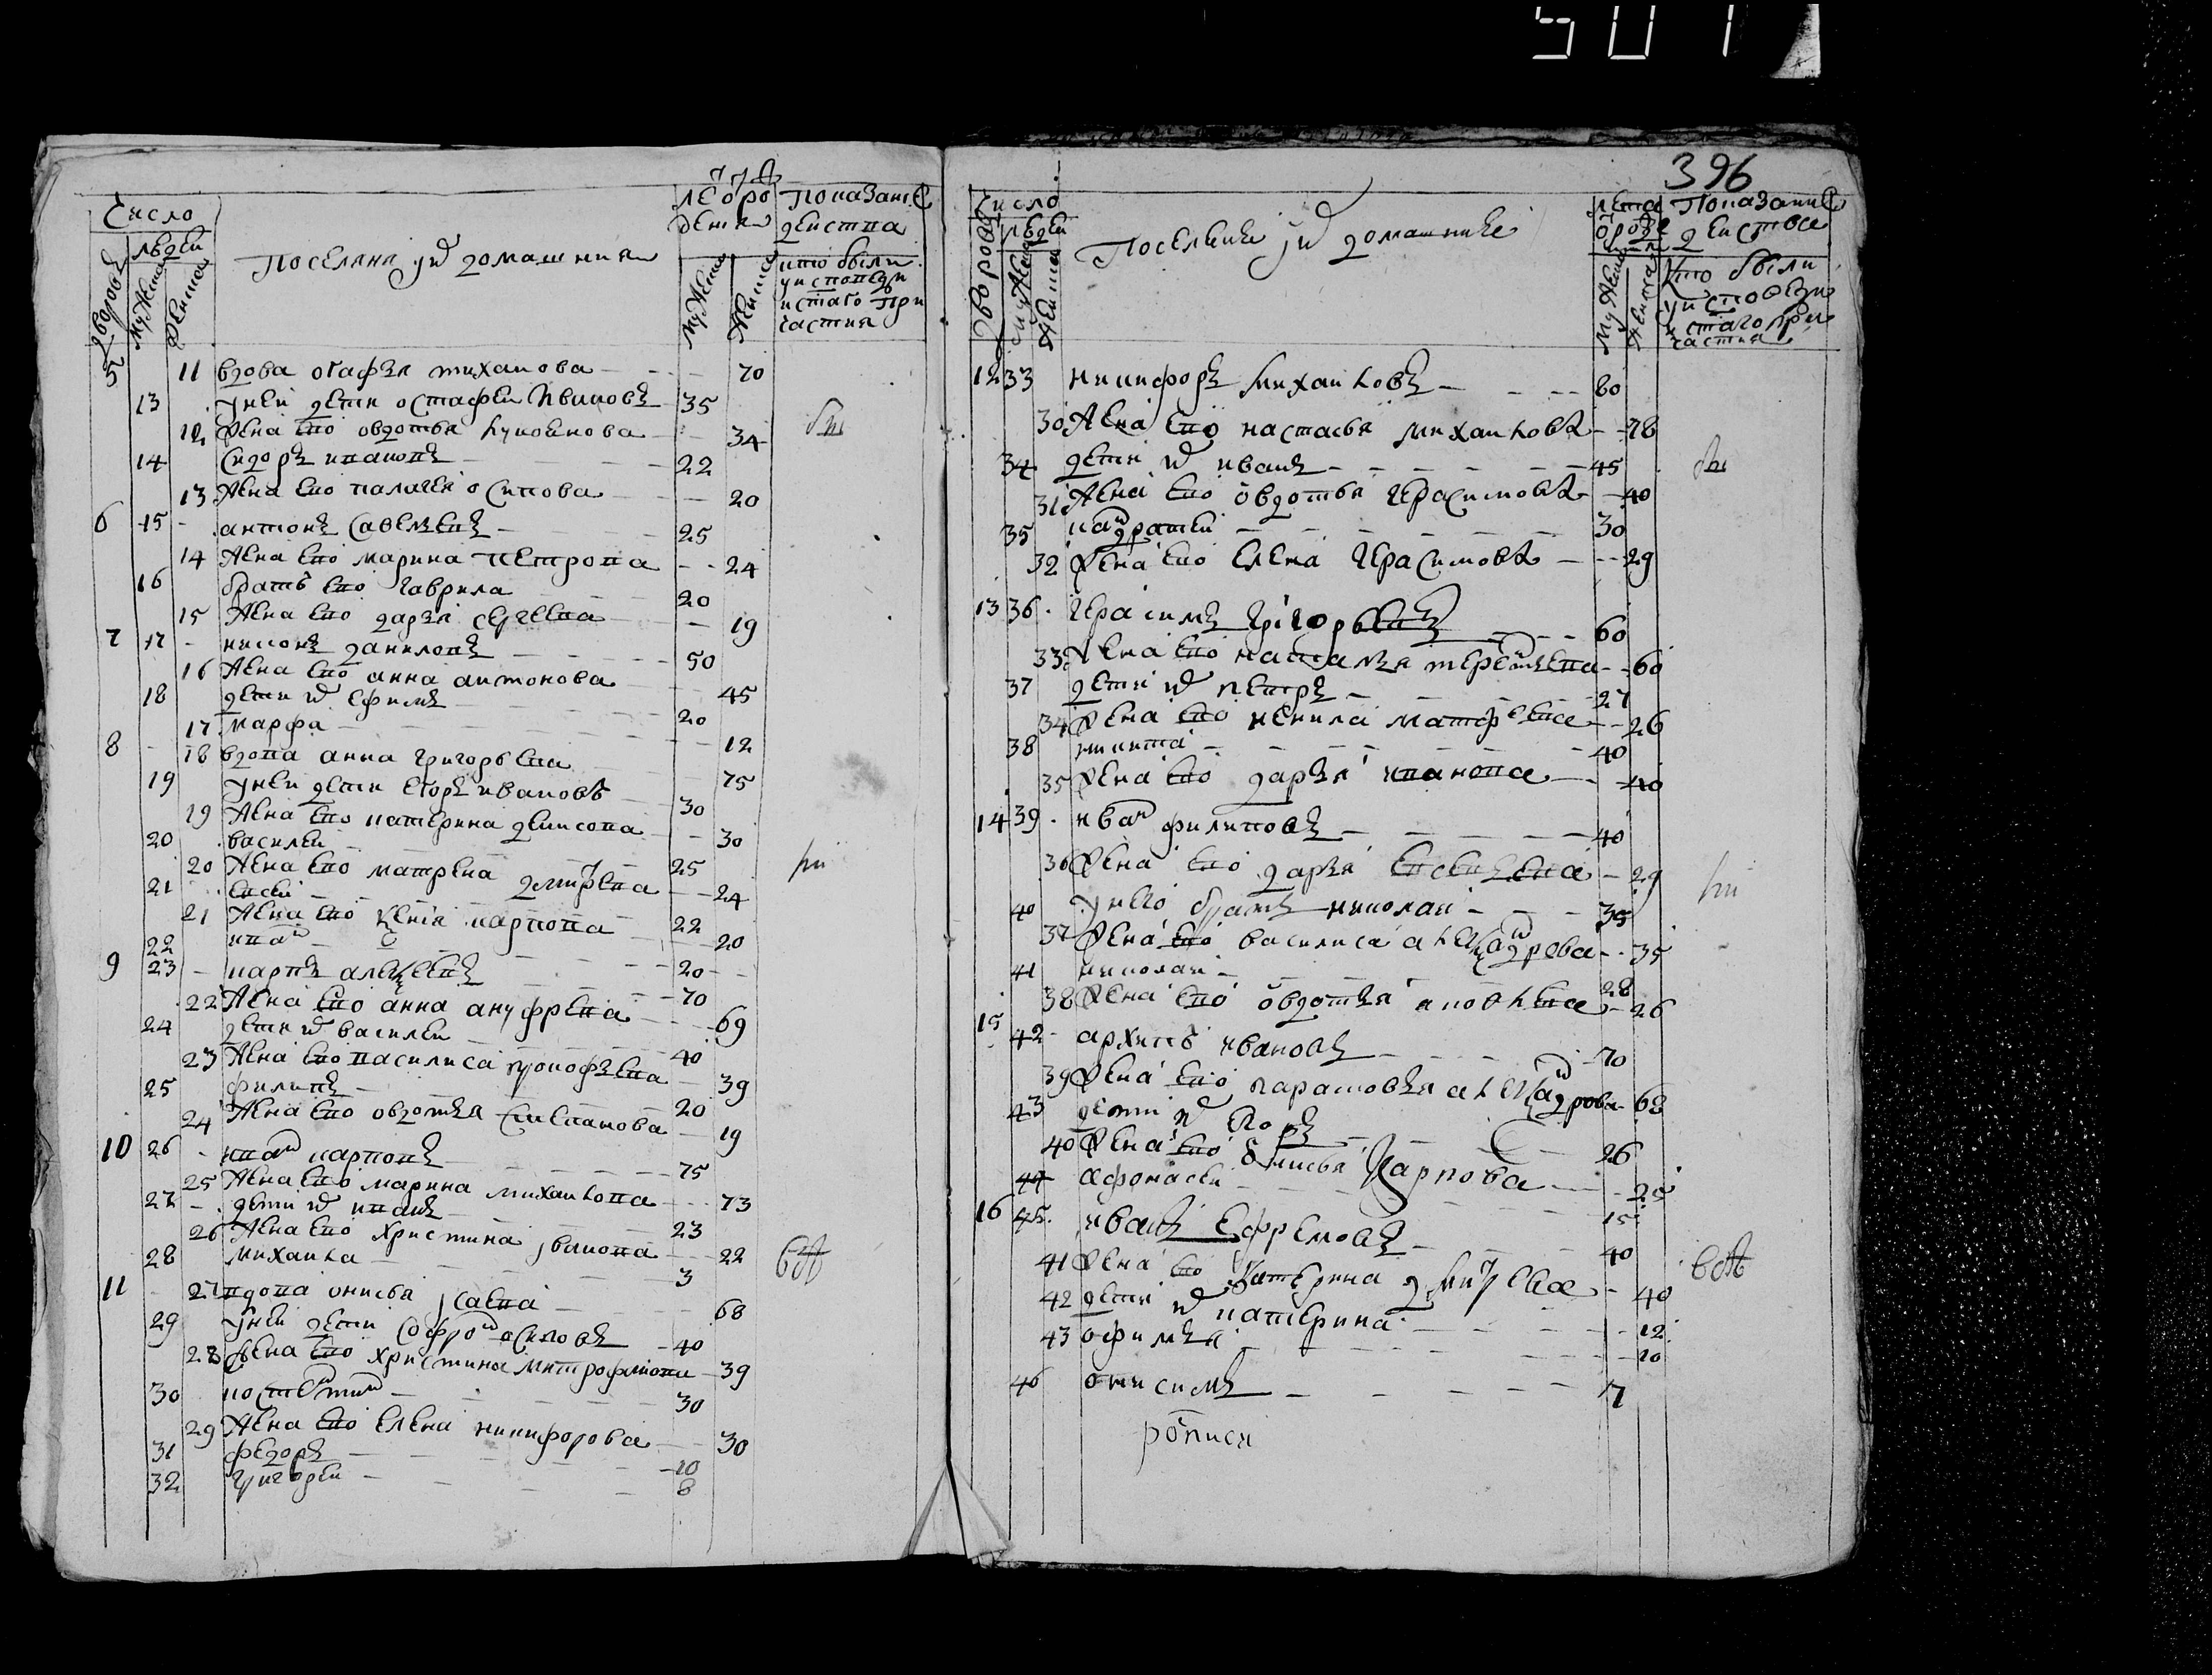 507
число
людеи
дворовъ
мужеска
женска
Поселяня ихъ домашния
лѣ о ро
дения
мужеска
женска
Показание
действа
кто были
у исповеди
и стаго при
частия
5 11 вдова огафья михаилова 70
13 у неи дети остафеи Ивановъ 35
12 Жена ево овдотья лукоянова 34
14 Сидоръ ивановъ 22
13 Жена ево палагея осипова 20
6 15 антонъ савельевъ 25
14 Жена ево марина петрова 24
16 братъ ево гаврила 20
15 Жена ево дарья сергеева 19
7 17 никонъ даниловъ 50
16 Жена ево анна антонова 45
18 дети ихъ ефимъ 20
17 марфа 12
8 18 вдова анна григорьева 75
19 у неи дети егоръ ивановъ 30
19 Жена ево катерина денисова 30
20 василеи 25
20 Жена ево матрена дмитрева 24
21 евсеи 22
21 Жена ево ксения карпова 20
22 иван 20
9 23 карпъ алексеевъ 70
22 Жена ево анна ануфрева 69
24 дети ихъ василеи 40
23 Жена ево василиса прокофьева 39
25 филипъ 20
24 Жена ево овдотья степанова 19
10 26 иван карповъ 75
25 Жена ево марина михаилова 73
27 дети ихъ иванъ 23
26 Жена ево христина иванова 22
28 михаила 3
11 27 вдова онисья исаева 68
29 у неи дети софрон осиповъ 40
28 Жена ево христина митрофанова 39
30 костентин 30
29 Жена ево елена никифорова 30
31 федоръ 10
32 григореи 8
бы
ли
всѣ
396
число
людеи
дворовъ
мужеска
женска
Поселяне ихъ домашние
лѣта
о рожде
мужеска
женска
Показание
действа
кто были
у исповеди
и стаго при
частия
12 33 никифоръ михаиловъ 80
30 Жена ево настасья михаилова 78
34 дети ихъ иванъ 45
31 Жена ево овдотья герасимова 40
35 кандратеи 30
32 Жена ево елена герасимова 29
13 36 герасимъ григорьевъ 60
33 Жена ево наталья терентьева 60
37 дети ихъ петръ 27
34 Жена ево ненила матфеева 26
38 никита 40
35 Жена ево дарья иванова 40
14 39 иван филиповъ 40
36 Жена ево дарья евсевьева 29
40 у него братъ николаи 35
37 Жена ево василиса александрова 35
41 николаи 28
38 Жена ево овдотья яковлева 26
15 42 архипъ ивановъ 70
39 Жена ево парасковья александрова 68
43 дети ихъ егоръ 26
40 Жена ево онисья карпова 25
44 афонасеи 15
16 45 иванъ ефремовъ 40
41 Жена ево катерина дмитрева 40
42 дети ихъ катерина 12
43 офимья 10
46 онисимъ 7
росписи
бы
ли
всѣ